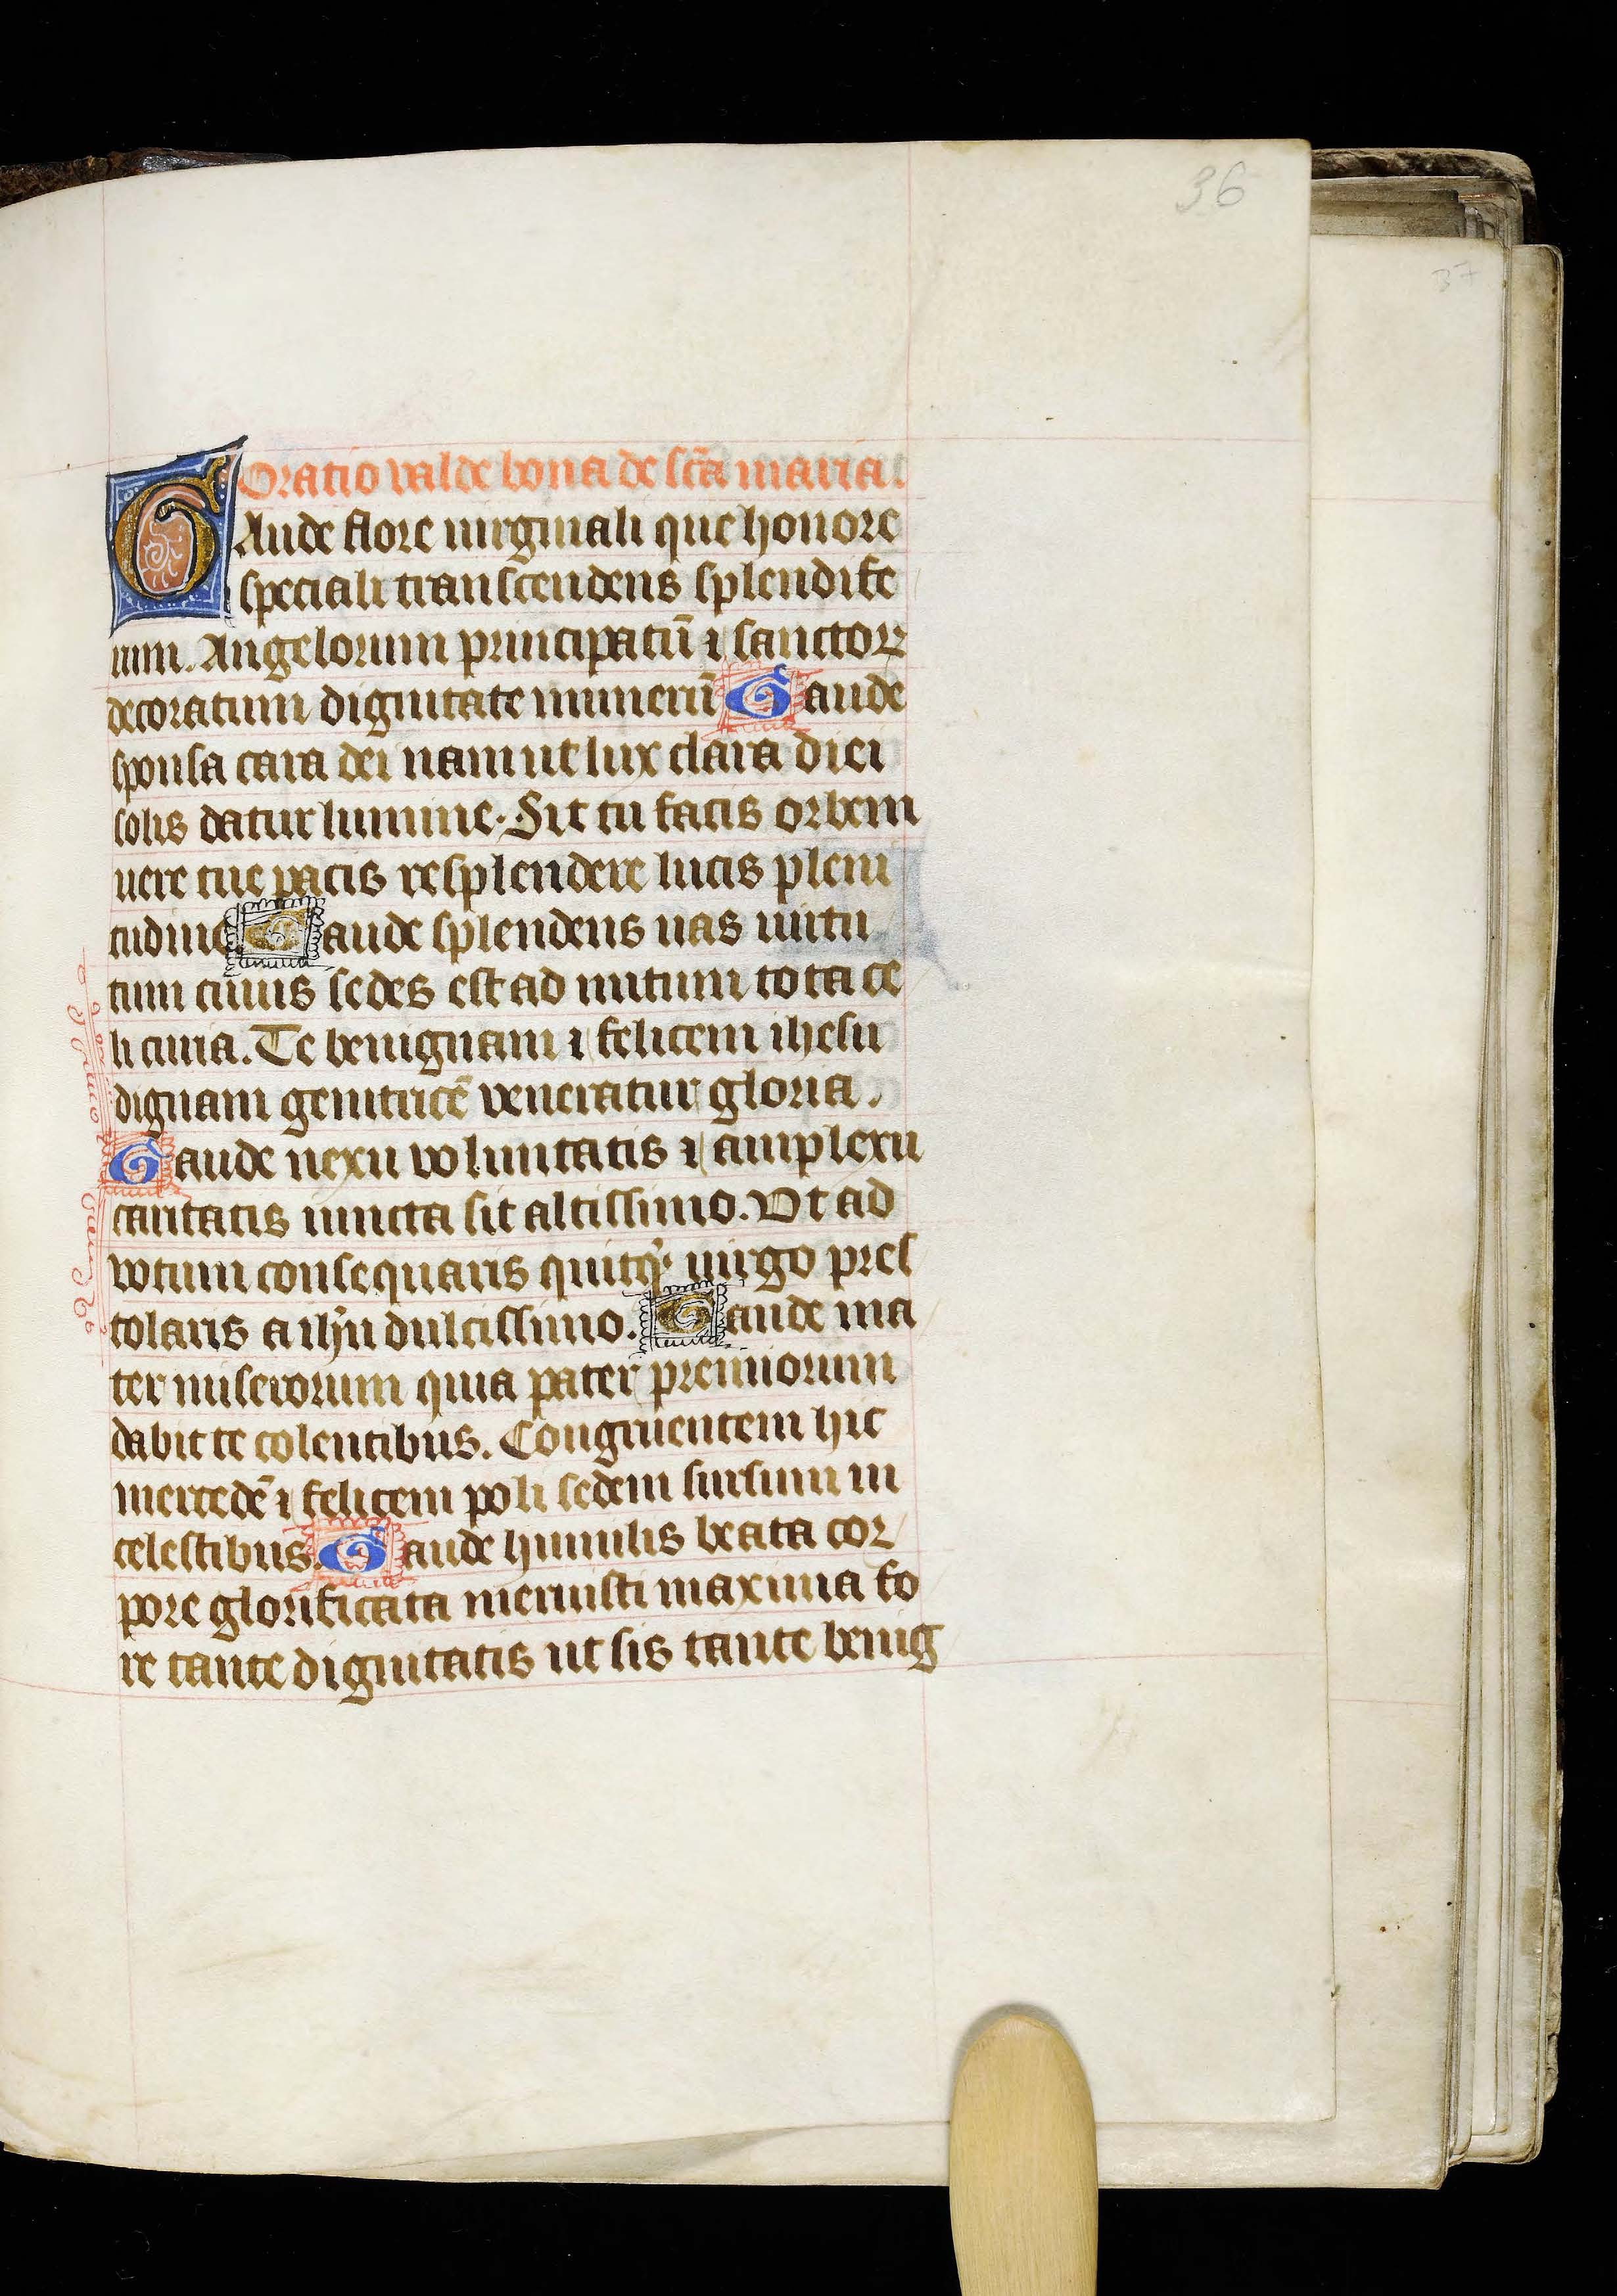 36
37
Oratio valde bona de scā maria.
GAude flore uirginali que honore
speciali transcendens splendife
rum. Angelorum principatū ⁊ sanctoꝝ
decoratum dignitate munerū Gaude
sponsa cara dei nam ut lux clara diei
solis datur lumine. Sic tu facis orbem
uere tue pacis resplendere lucis pleni
tudine Gaude splendens uas uirtu
tum cuius sedes est ad nutum tota ce
li curia. Te benignam ⁊ felicem ihesu
dignam genitricē veneratur gloria.
Gaude nexu voluntatis ⁊ amplexu
caritatis iuncta sit altissimo. Vt ad
votum consequaris quitq; uirgo pres
tolaris a ih̄u dulcissimo. Gaude ma
ter miserorum quia pater premiorum
dabit te colentibus. Congruentem hic
mercedē ⁊ felicem poli sedem sursum in
celestibus. Gaude humilis beata cor
pore glorificata meruisti maxima fo
re tante dignitatis ut sis tante benig